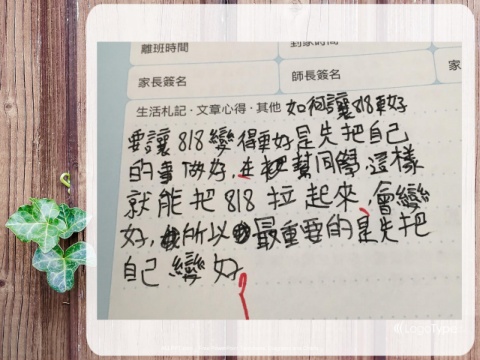 離班時間 到家時間
家長簽名 師長簽名 家
生活札記·文章心得·其他 如何讓818更好
要讓818變得更好是先把自己
的事做好,在把幫同學,這樣
就能把818拉起來,會變
好,所以最重要的是先把
自己變好
LogoType